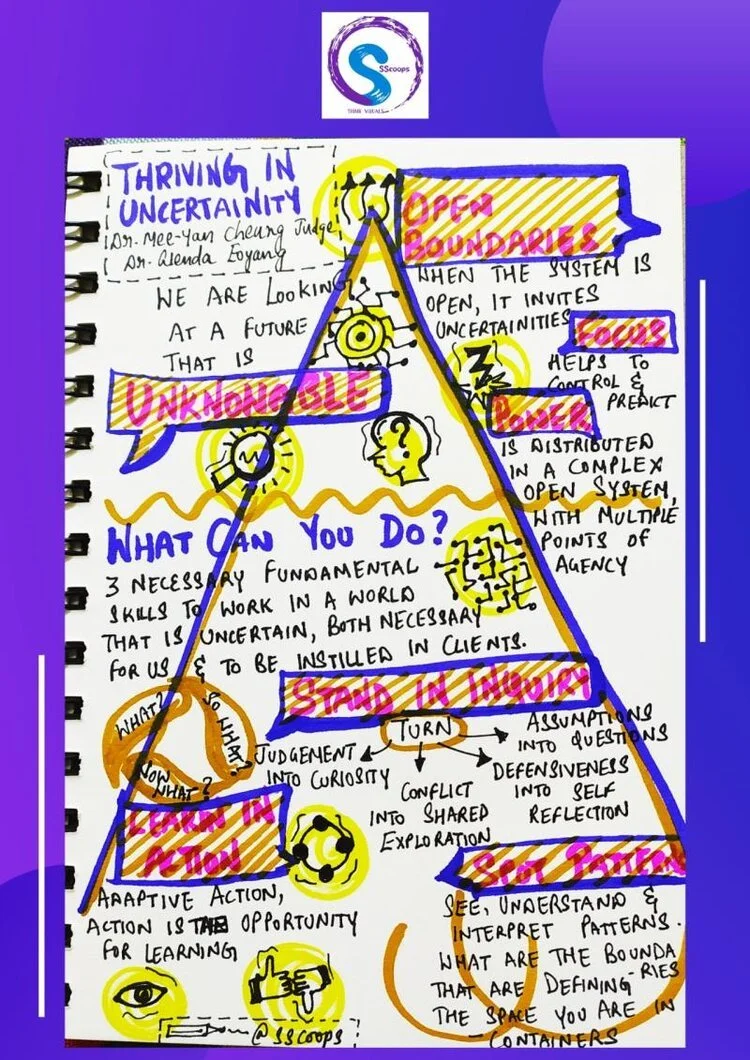 SScoops
THINK VISUALS
THRIVING IN
UNCERTAINITY
Dr. Mee-Yan Cheung Judge
Dr. Glenda Eoyang
WE ARE LOOKING
AT A FUTURE
THAT IS
UNKNONABLE
OPEN
BOUNDARIES
WHEN THE SYSTEM IS
OPEN, IT INVITES
UNCERTAINITIES
FOCUS
HELPS TO
CONTROL &
PREDICT
POWER
IS DISTRIBUTED
IN A COMPLEX
OPEN SYSTEM,
WITH MULTIPLE
POINTS OF
AGENCY
?
WHAT CAN YOU DO?
3 NECESSARY FUNDAMENTAL
SKILLS TO WORK IN A WORLD
THAT IS UNCERTAIN, BOTH NECESSARY
FOR US & TO BE INSTILLED IN CLIENTS.
STAND IN INQUIRY
TURN
JUDGEMENT
INTO CURIOSITY
CONFLICT
INTO SHARED
EXPLORATION
DEFENSIVENESS
INTO SELF
REFLECTION
ASSUMPTIONS
INTO QUESTIONS
WHAT?
SO WHAT?
NOW
WHAT?
LEARN IN
ACTION
ADAPTIVE ACTION,
ACTION IS THE OPPORTUNITY
FOR LEARNING
SPOT PATTERN
SEE, UNDERSTAND &
INTERPRET PATTERNS.
WHAT ARE THE BOUNDA
-RIES
THAT ARE DEFINING
THE SPACE YOU ARE IN
- CONTAINERS
@SScoops